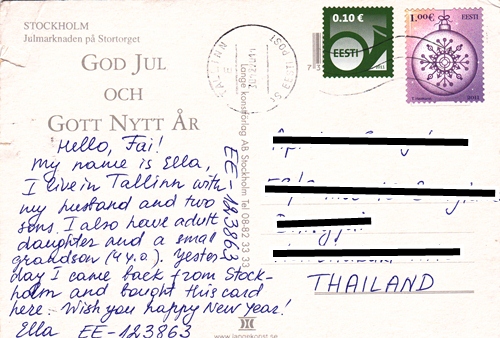 STOCKHOLM
Julmarknaden på Stortorget
GOD JUL
OCH
GOTT NYTT ÅR
Hello, Fai!
My name is Ella,
I live in Tallinn with
my husband and two
sons. I also have adult
daughter and a small
grandson (4 y.o.). Yester-
day I came back from Stock-
holm and bought this card
here. Wish you happy New Year!
Ella EE-123863
EE-123863
Lange konstförlag AB Stockholm Tel 08-82 33 33
www.langekonst.se
TALLINN
EESTI POST
0.10 €
EESTI
2011
1,00€ EESTI
THAILAND